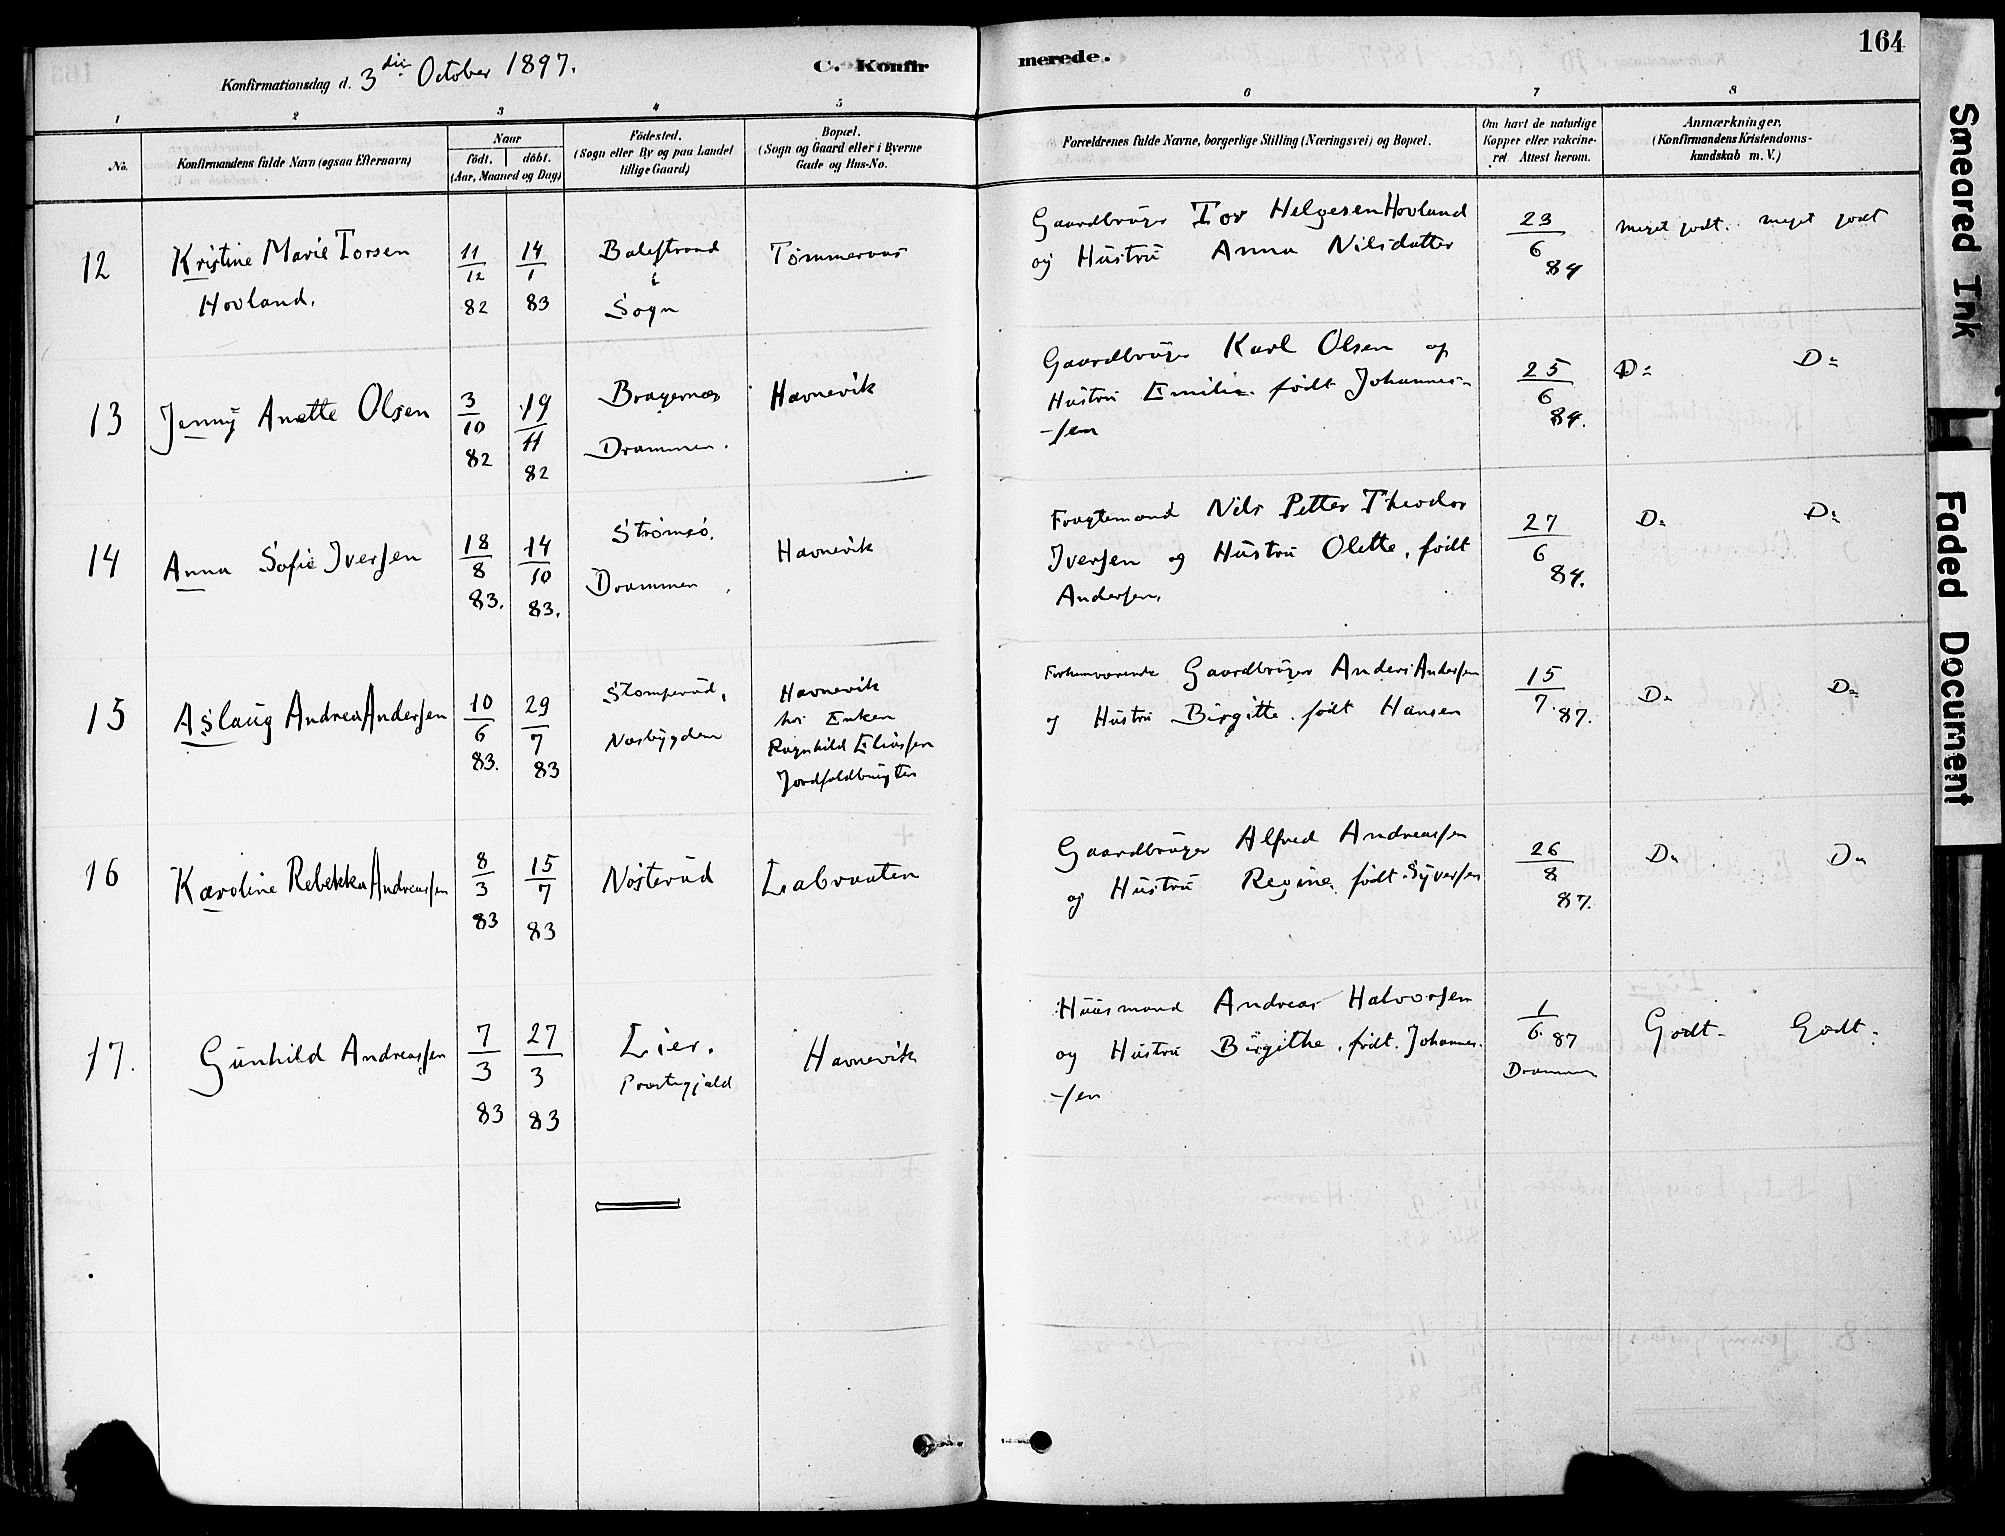 164
Konfirmationsdag d. 3die October 1897.
C. Konfirmerede.
1 2 3 4 5 6 7 8
No.
Konfirmandens fulde Navn (ogsaa Efternavn)
Naar
födt. döbt.
(Aar, Maaned og Dag)
Födested.
(Sogn eller By og paa Landet
tillige Gaard)
Bopæl.
(Sogn og Gaard eller i Byerne
Gade og Hus-No.
Forældrenes fulde Navne, borgerlige Stilling (Næringsvei) og Bopæl.
Om havt de naturlige
Kopper eller vakcine-
ret. Attest herom.
Anmærkninger.
(Konfirmandens Kristendoms-
kundskab m. V.)
12
Kristine Marie Torsen
Hovland.
11/12 82
14/1 83
Balestrand
i
Sogn
Tømmeraas
Gaardbruger Tor Helgesen Hovland
og Hustru Anna Nilsdatter
23/6 84
meget godt. meget godt
13
Jenny Anette Olsen
3/10 82
19/11 82
Bragernæs
Drammen.
Havnevik
Gaardbruger Karl Olsen og
Hustru Emilie. født Johannes-
-sen
25/6 84.
Do Do
14
Anna Sofie Iversen
18/8 83.
14/10 83.
Strømsø.
Drammen
Havnevik
Fragtemand Nils Petter Theodor
Iversen og Hustru Olette, født
Andersen.
27/6 84.
Do Do
15
Aslaug Andrea Andersen
10/6 83.
29/7 83
Stomperud,
Næsbygden
Havnevik
hos Enken
Ragnhild Eliassen
Forhenværende Gaardbruger Anders Andersen
og Hustru Birgitte. født Hansen
15/7 87.
Do Do
16
Karoline Rebekka Andreassen
8/3 83
15/7 83
Nøsterud
Labraaten
Gaardbruger Alfred Andreassen
og Hustru Regine. født Syversen
26/8 87.
Do Do
17.
Gunhild Andreassen
7/3 83
27/3 83
Lier.
Præstegjeld
Havnevik
Huusmand Andreas Halvorsen
og Hustru Birgithe. født. Johannes-
-sen
1/6 87
Drammen
Godt- Godt.
Smeared Ink
Faded Document